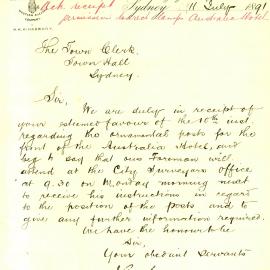 Ack receipt
Sydney 11 July 1891
permission Australia Hotel
The Town Clerk,
Town Hall
Sydney.
Sir,
We are duly in receipt of
your esteemed favour of the 10th inst.
regarding the ornamental posts for the
front of the Australia Hotel, and
beg to say that our Foreman will
attend at the City Surveyors Office
at 9.30 on Monday morning next
to receive his instructions in regard
to the position of the posts and to
give any further information required.
We have the honour to be
Sir,
Your obedient Servants